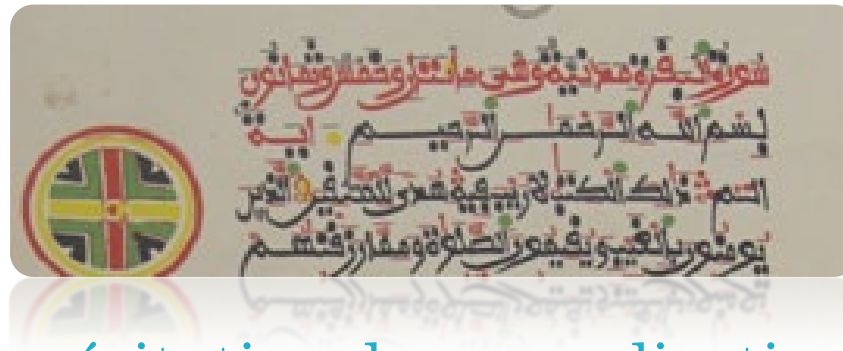 سورة البقرة مدنية وهى مائتان وخمس وثمانون
بسم الله الرحمن الرحيم اية
الم ذلك الكتب لا ريب فيه هدى للمتقين الذين
يومنون بالغيب ويقيمون الصلوة ومما رزقنهم